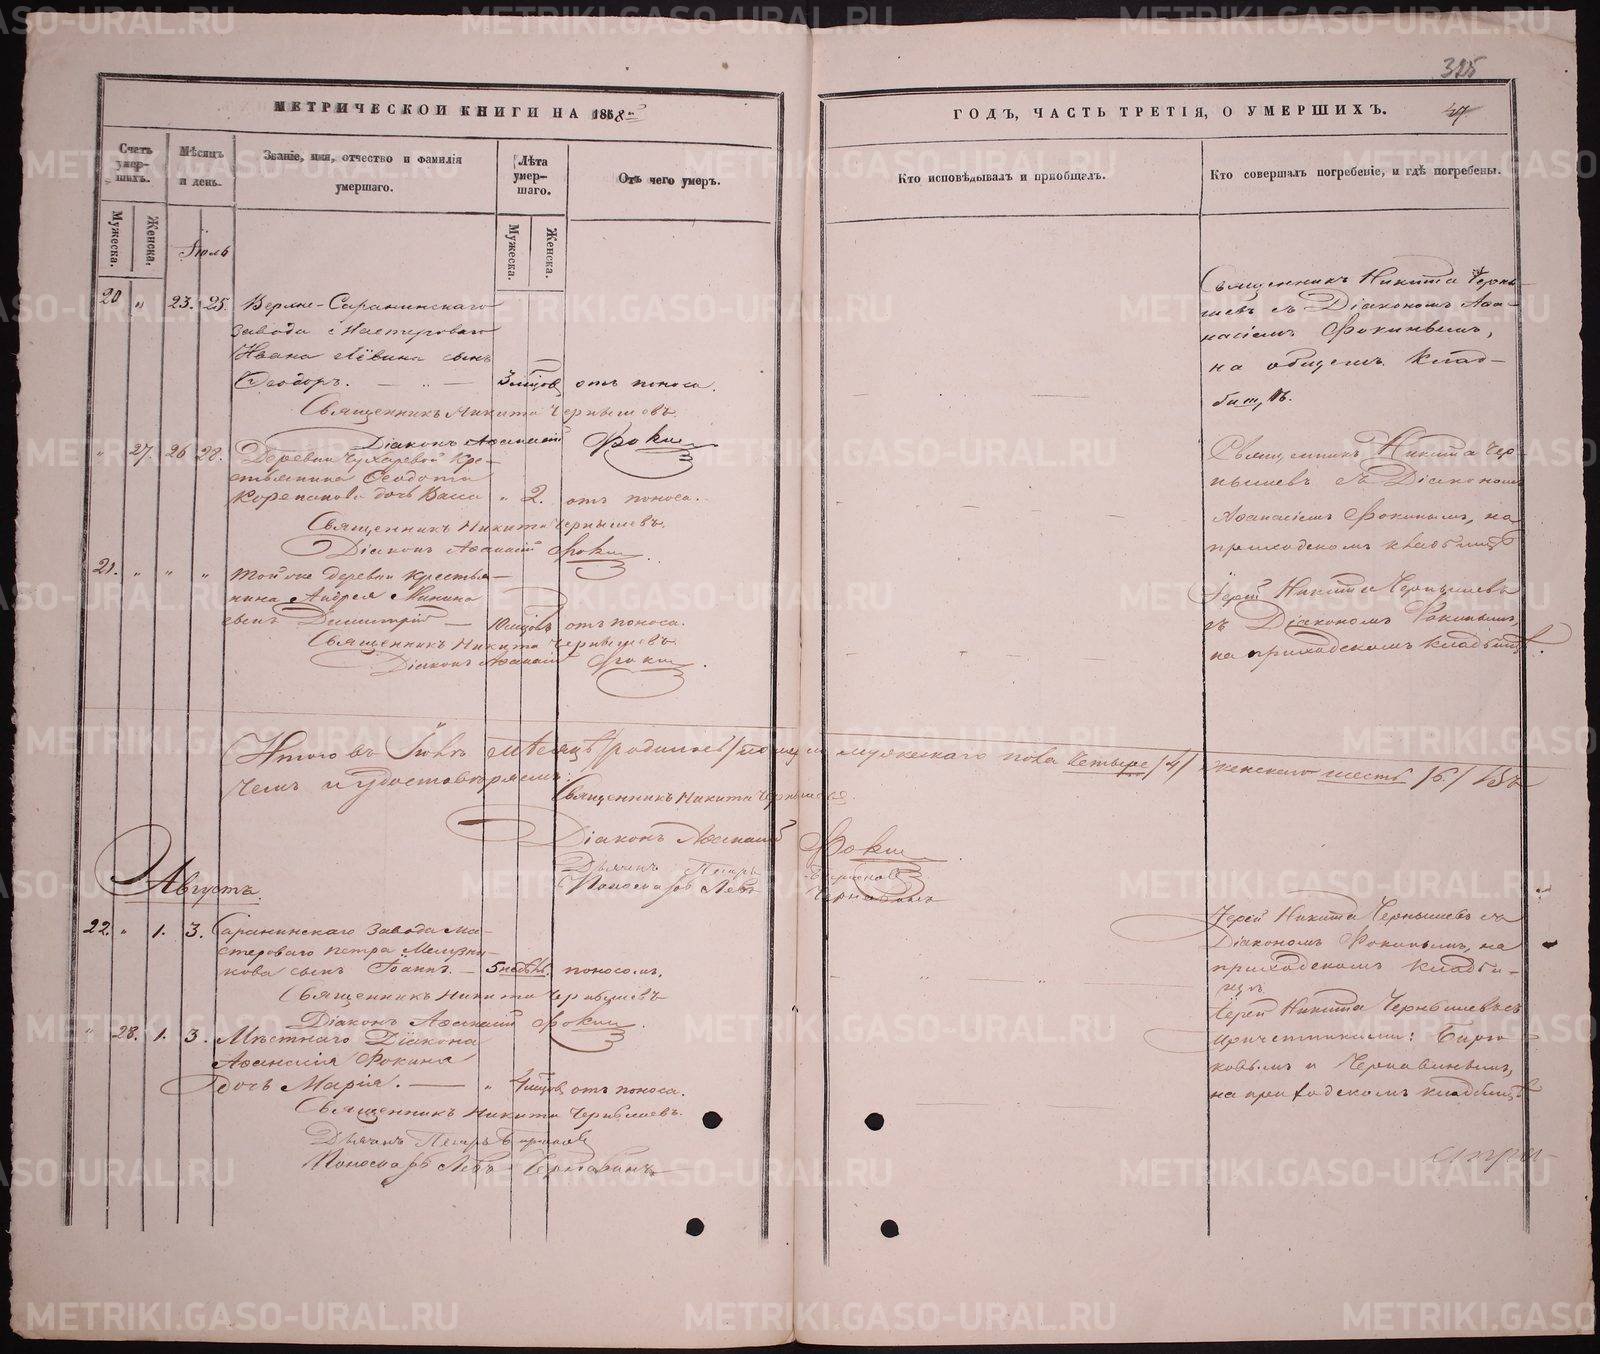 325
МЕТРИЧЕСКОЙ КНИГИ НА 1858й
ГОДЪ, ЧАСТЬ ТРЕТІЯ, О УМЕРШИХЪ.
Счетъ умер-шихъ.
Мѣсяцъ и день.
Званіе, имя, отчество и фамилія умершаго.
Лѣта умер-шаго.
Отъ чего умеръ.
Кто исповѣдывалъ и пріобщалъ.
Кто совершалъ погребеніе, и гдѣ погребены.
Мужеска.
Женска.
Мужеска.
Женска.
Іюль
20 " 23. 25. Верхне-Саранинскаго
завода Мастероваго
Ивана Лёвина сынъ
Ѳеодоръ. 3 мѣсцов отъ поноса.
Священникъ Никита Черны-
шевъ съ Діакономъ Аѳа-
насіемъ Фокинымъ,
на общемъ клад-
бищѣ.
Священникъ Никита Чернышевъ
Діаконъ Аѳанасій Фокин
" 27. 26 28. Деревни Чухаревой кре-
стьянина Ѳеодота
Корепанова дочь Васса " 2. отъ поноса.
Священникъ Никита Чер-
нышевъ съ Діакономъ
Аѳанасіемъ Фокинымъ, на
приходскомъ кладбищѣ
Священникъ Никита Чернышевъ.
Діаконъ Аѳанасій Фокин.
21. " " " Той же деревни крестья-
нина Андрея Минина
сынъ Димитрій 10 мѣсцовъ отъ поноса.
Іерей Никита Чернышевъ
съ Діакономъ Фокинымъ,
на приходскомъ кладбищѣ.
Священникъ Никита Чернышевъ.
Діаконъ Аѳанасій Фокин.
Итого въ Іюлѣ мѣсяцѣ /родилось/ мужескаго пола четыре /4/ женскаго шесть /6/
чемъ и удостовѣряемъ:
Священникъ Никита Чернышевъ.
Діаконъ Аѳанасій Фокин
Дьячекъ Петръ
Пономарь Левъ Чернавинъ
Августъ.
22. " 1. 3. Саранинскаго завода Ма-
стероваго Петра
сынъ Іоаннъ. 5 недѣль. поносомъ.
Іерей Никита Чернышевъ съ
Діакономъ Фокинымъ, на
приходскомъ кладби-
щѣ.
Священникъ Никита Чернышевъ
Діаконъ Аѳанасій Фокин.
" 28. 1. 3. Мѣстнаго Діакона
Аѳанасія Фокина
дочь Марія. " 4 мѣсцов отъ поноса.
Іерей Никита Чернышевъ съ
причетниками:
и Чернавинымъ,
на приходскомъ кладбищѣ
Священникъ Никита Чернышевъ.
Дьячекъ Петръ
Пономарь Левъ Чернавинъ
METRIKI.GASO-URAL.RU